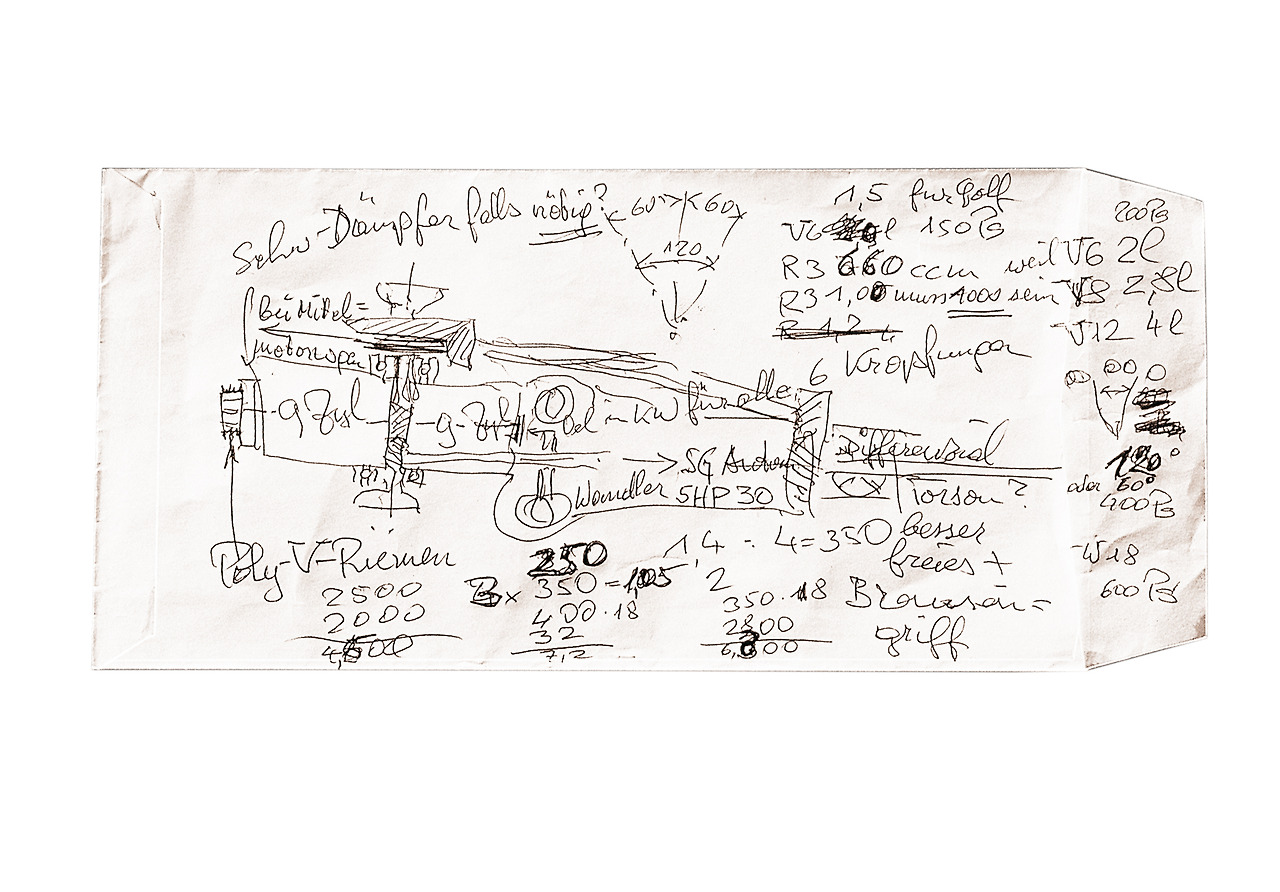 Schw-Dämpfer falls nötig?
60° 60°
120
1,5 für Golf
V6 l 150 PS
R3 660 ccm weil V6 2l
R3 1,00 muss 1000 sein V8 2,8l
R 1,2
V12 4l
200 PS
6 Kröpfungen
bei Mittel=
motorwagen
9 Zyl 9 Zyl
Oel in KW für alle
→ 5G Autom
Wandler 5HP30
Differenzial
Torsen?
besser
freies +
Bremsen=
griff
90
120°
oder 60°
400 PS
W18
600 PS
Poly-V-Riemen
2500
2000
4,500
250
x 350 = 1,05
400·18
32
7,2
1,4 : 4=350
2
350·18
2800
6,300